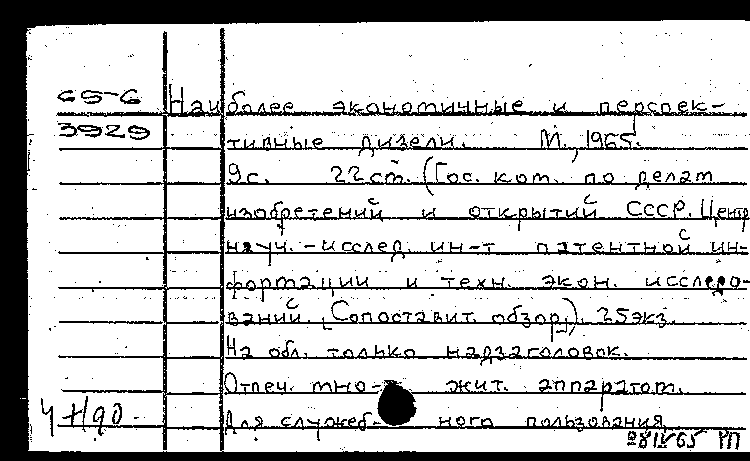 65-6 Наиболее экономичные и перспек-
3929 тивные дизели. М., 1965.
9с. 22 см. (Гос. ком. по делам
изобретений и открытий СССР. Центр
науч.-исслед. ин-т патентной ин-
формации и техн. экон. исследо-
ваний. [Сопоставит. обзор]). 25 экз.
На обл. только надзаголовок.
Отпеч. мно- жит. аппаратом.
Для служеб- ного пользования
28IV65